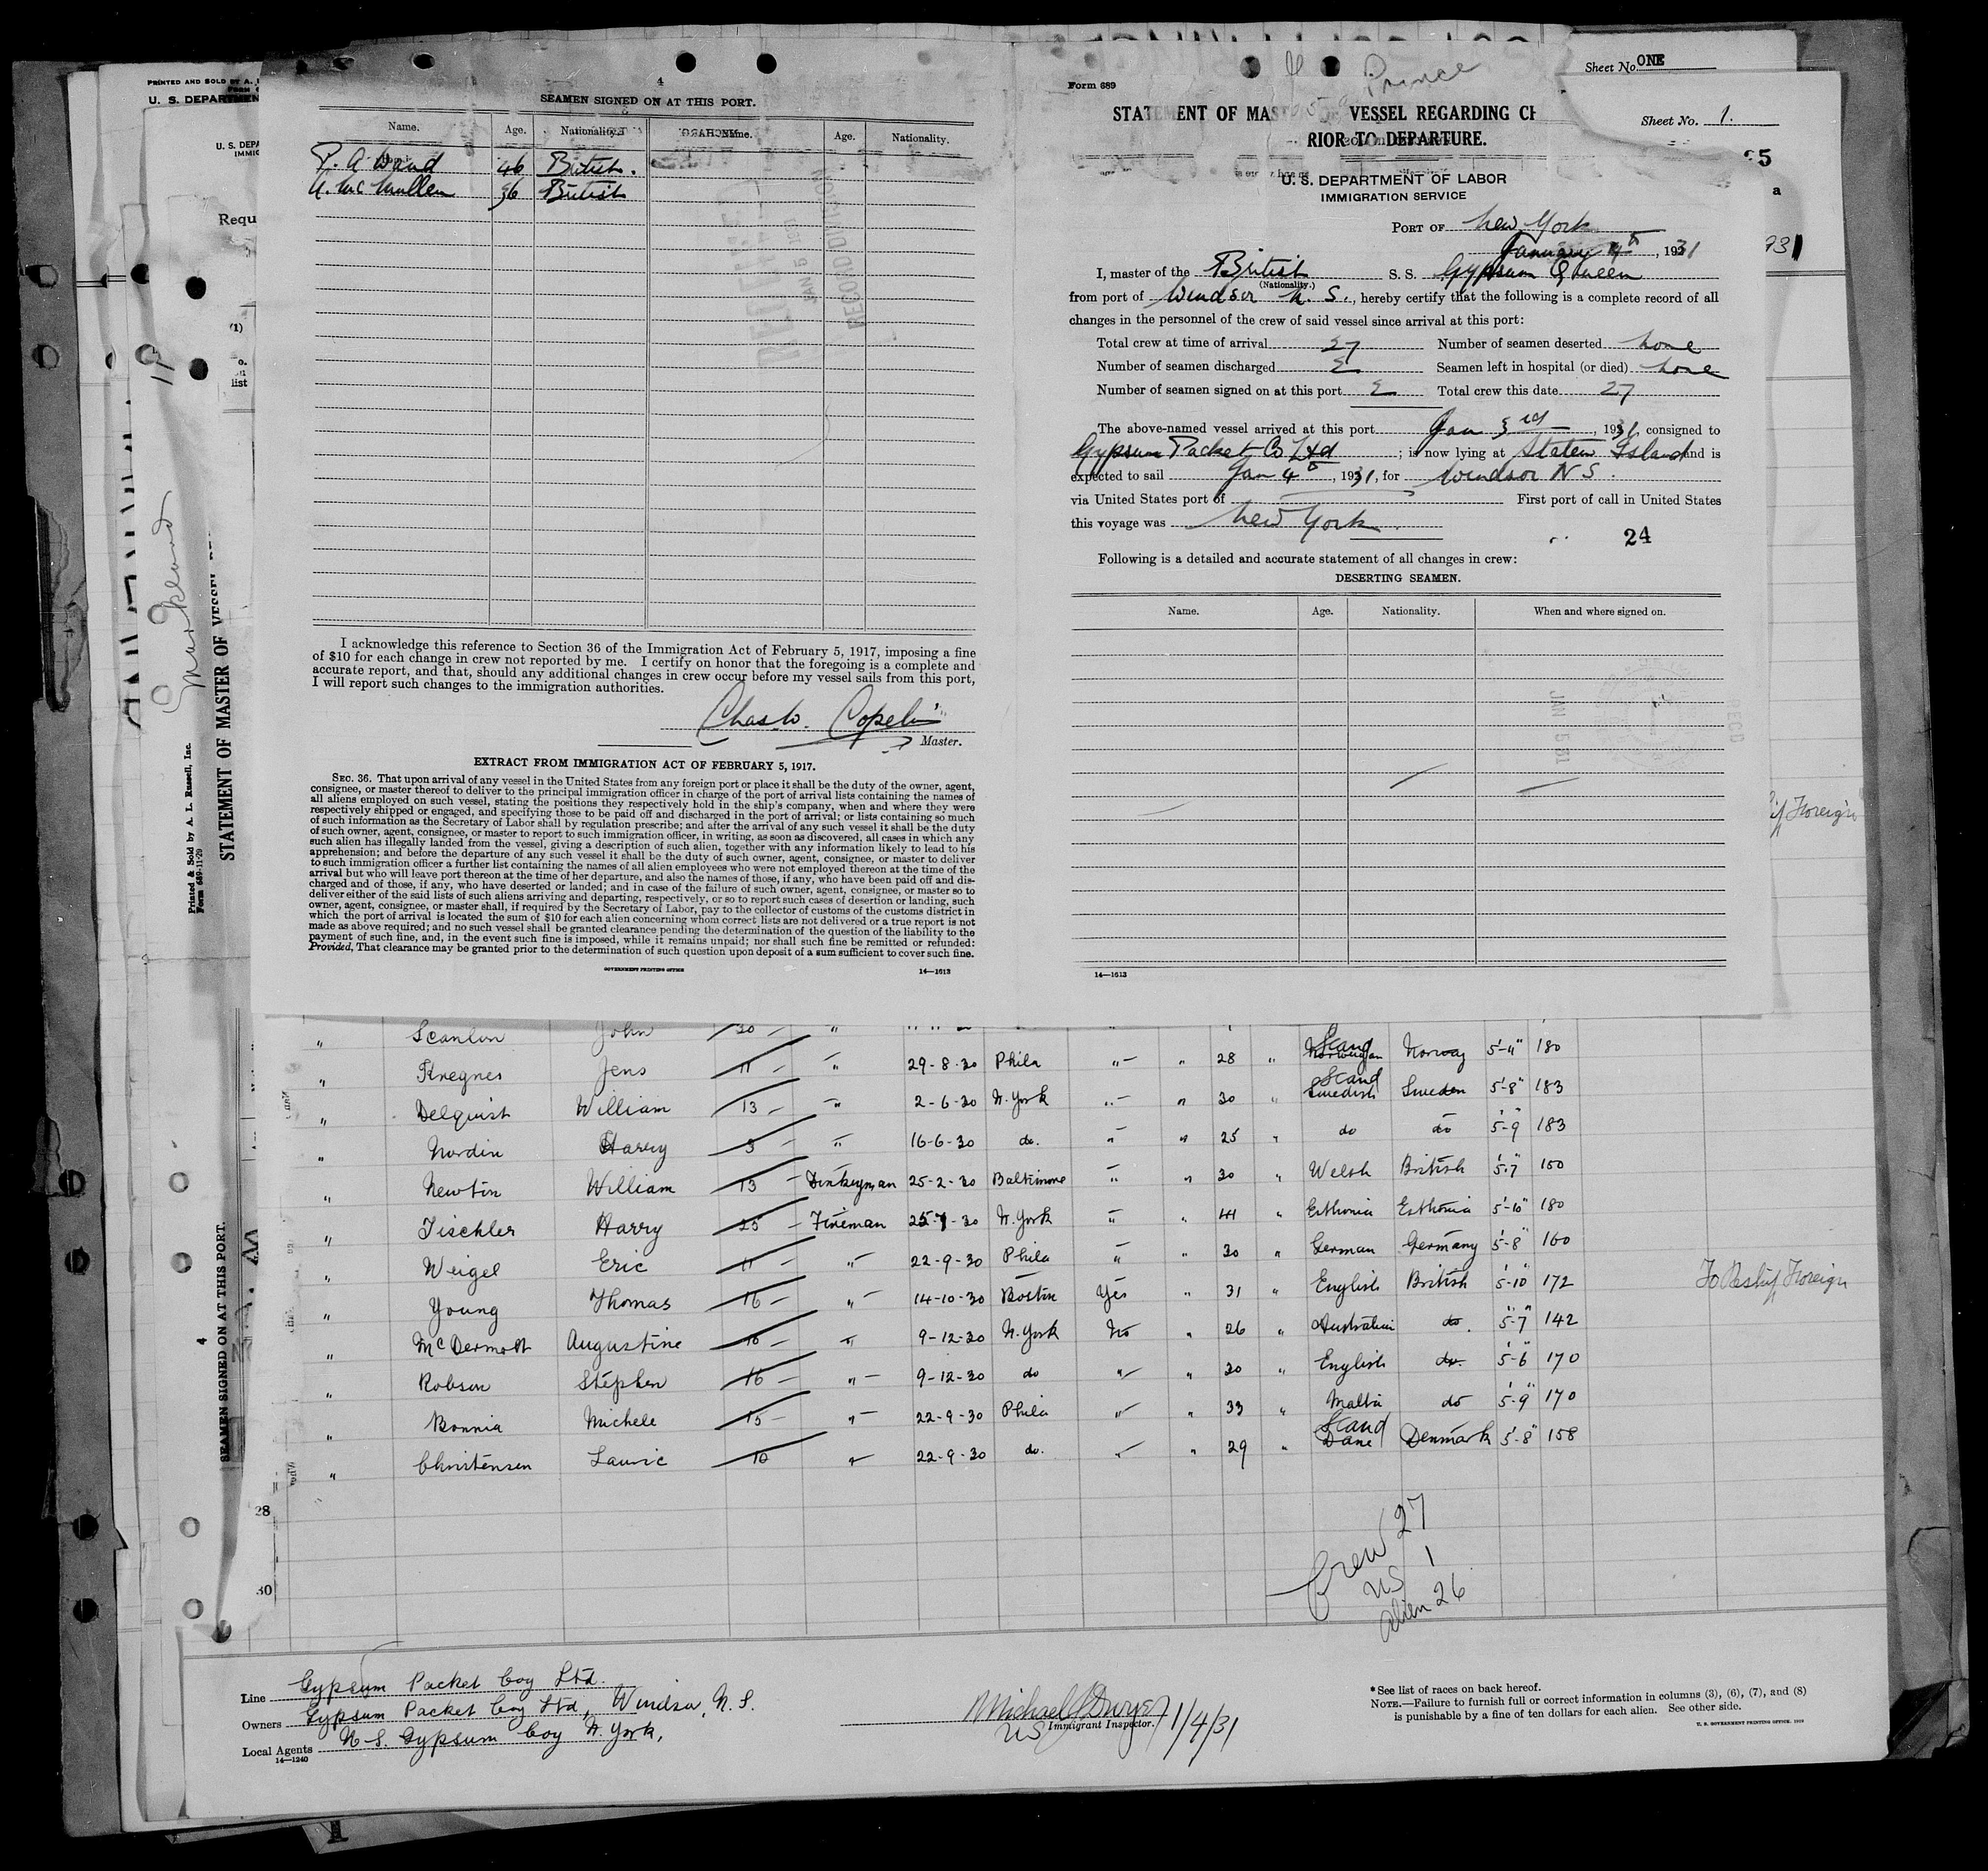 4
SEAMEN SIGNED ON AT THIS PORT.
Name. Age. Nationality. Name. Age. Nationality.
P. A. Wand 46 British.
McMullen 36 British
I acknowledge this reference to Section 36 of the Immigration Act of February 5, 1917, imposing a fine
of $10 for each change in crew not reported by me. I certify on honor that the foregoing is a complete and
accurate report, and that, should any additional changes in crew occur before my vessel sails from this port,
I will report such changes to the immigration authorities.
Master.
EXTRACT FROM IMMIGRATION ACT OF FEBRUARY 5, 1917.
SEC. 36. That upon arrival of any vessel in the United States from any foreign port or place it shall be the duty of the owner, agent,
consignee, or master thereof to deliver to the principal immigration officer in charge of the port of arrival lists containing the names of
all aliens employed on such vessel, stating the positions they respectively hold in the ship's company, when and where they were
respectively shipped or engaged, and specifying those to be paid off and discharged in the port of arrival; or lists containing so much
of such information as the Secretary of Labor shall by regulation prescribe; and after the arrival of any such vessel it shall be the duty
of such owner, agent, consignee, or master to report to such immigration officer, in writing, as soon as discovered, all cases in which any
such alien has illegally landed from the vessel, giving a description of such alien, together with any information likely to lead to his
apprehension; and before the departure of any such vessel it shall be the duty of such owner, agent, consignee, or master to deliver
to such immigration officer a further list containing the names of all alien employees who were not employed thereon at the time of the
arrival but who will leave port thereon at the time of her departure, and also the names of those, if any, who have been paid off and dis-
charged and of those, if any, who have deserted or landed; and in case of the failure of such owner, agent, consignee, or master so to
deliver either of the said lists of such aliens arriving and departing, respectively, or so to report such cases of desertion or landing, such
owner, agent, consignee, or master shall, if required by the Secretary of Labor, pay to the collector of customs of the customs district in
which the port of arrival is located the sum of $10 for each alien concerning whom correct lists are not delivered or a true report is not
made as above required; and no such vessel shall be granted clearance pending the determination of the question of the liability to the
payment of such fine, and, in the event such fine is imposed, while it remains unpaid; nor shall such fine be remitted or refunded:
Provided, That clearance may be granted prior to the determination of such question upon deposit of a sum sufficient to cover such fine.
GOVERNMENT PRINTING OFFICE 14—1613
Prince
Sheet No. ONE
Sheet No. 1.
Form 689
STATEMENT OF MAS VESSEL REGARDING CH
RIOR TO DEPARTURE.
U. S. DEPARTMENT OF LABOR
IMMIGRATION SERVICE
PORT OF New York
January 4th, 1931
I, master of the British S. S. Gypsum Queen
(Nationality.)
from port of Windsor N. S., hereby certify that the following is a complete record of all
changes in the personnel of the crew of said vessel since arrival at this port:
Total crew at time of arrival 27 Number of seamen deserted none
Number of seamen discharged 2 Seamen left in hospital (or died) none
Number of seamen signed on at this port 2 Total crew this date 27
The above-named vessel arrived at this port Jan 3rd, 1931, consigned to
Gypsum Packet Co Ltd; is now lying at Staten Island and is
expected to sail Jan 4th, 1931, for Windsor N S.
via United States port of First port of call in United States
this voyage was New York.
24
Following is a detailed and accurate statement of all changes in crew:
DESERTING SEAMEN.
Name. Age. Nationality. When and where signed on.
14—1613
" Scanlon John 30
" Kregnes Jens 11 " 29-8-30 Phila " " 28 " Scand Norwegian Norway 5'-11" 180
" Delquist William 13 " 2-6-30 N. York " " 30 " Scand Swedish Sweden 5'-8" 183
" Nordin Harry 3 " 16-6-30 do. " " 25 " do do 5'-9" 183
" Newton William 13 Donkeyman 25-2-30 Baltimore " " 30 " Welsh British 5'-7" 150
" Tischler Harry 25 Fireman 25-7-30 N. York " " 41 " Esthonia Esthonia 5'-10" 180
" Weigel Eric 11 " 22-9-30 Phila " " 30 " German Germany 5'-8" 160
" Young Thomas 16 " 14-10-30 Boston Yes " 31 " English British 5'-10" 172 To Reship Foreign
" McDermott Augustine 10 " 9-12-30 N. York No " 26 " Australian do. 5'-7" 142
" Robson Stephen 16 " 9-12-30 do " " 30 " English do. 5'-6" 170
" Bonnia Michele 15 " 22-9-30 Phila " " 33 " Malta do 5'-9" 170
" Christensen Lauric 10 " 22-9-30 do. " " 29 " Scand Dane Denmark 5'-8" 158
28
30
Crew 27
US 1
Alien 26
Line Gypsum Packet Coy Ltd.
Owners Gypsum Packet Coy Ltd, Windsor, N. S.
Local Agents N. S. Gypsum Coy N. York,
14—1240
Michael J Dwyer 1/4/31
US Immigrant Inspector.
*See list of races on back hereof.
NOTE.—Failure to furnish full or correct information in columns (3), (6), (7), and (8)
is punishable by a fine of ten dollars for each alien. See other side.
U. S. GOVERNMENT PRINTING OFFICE: 1929
PRINTED AND SOLD BY A.
U. S. DEPARTMEN
Requ
Markland
STATEMENT OF MASTER OF VESSEL
Printed & Sold by A. L. Russell, Inc.
Form 689-11-29
4
SEAMEN SIGNED ON AT THIS PORT.
JAN 5 1931
RECORD DIVISION
JAN 5 31
REC'D